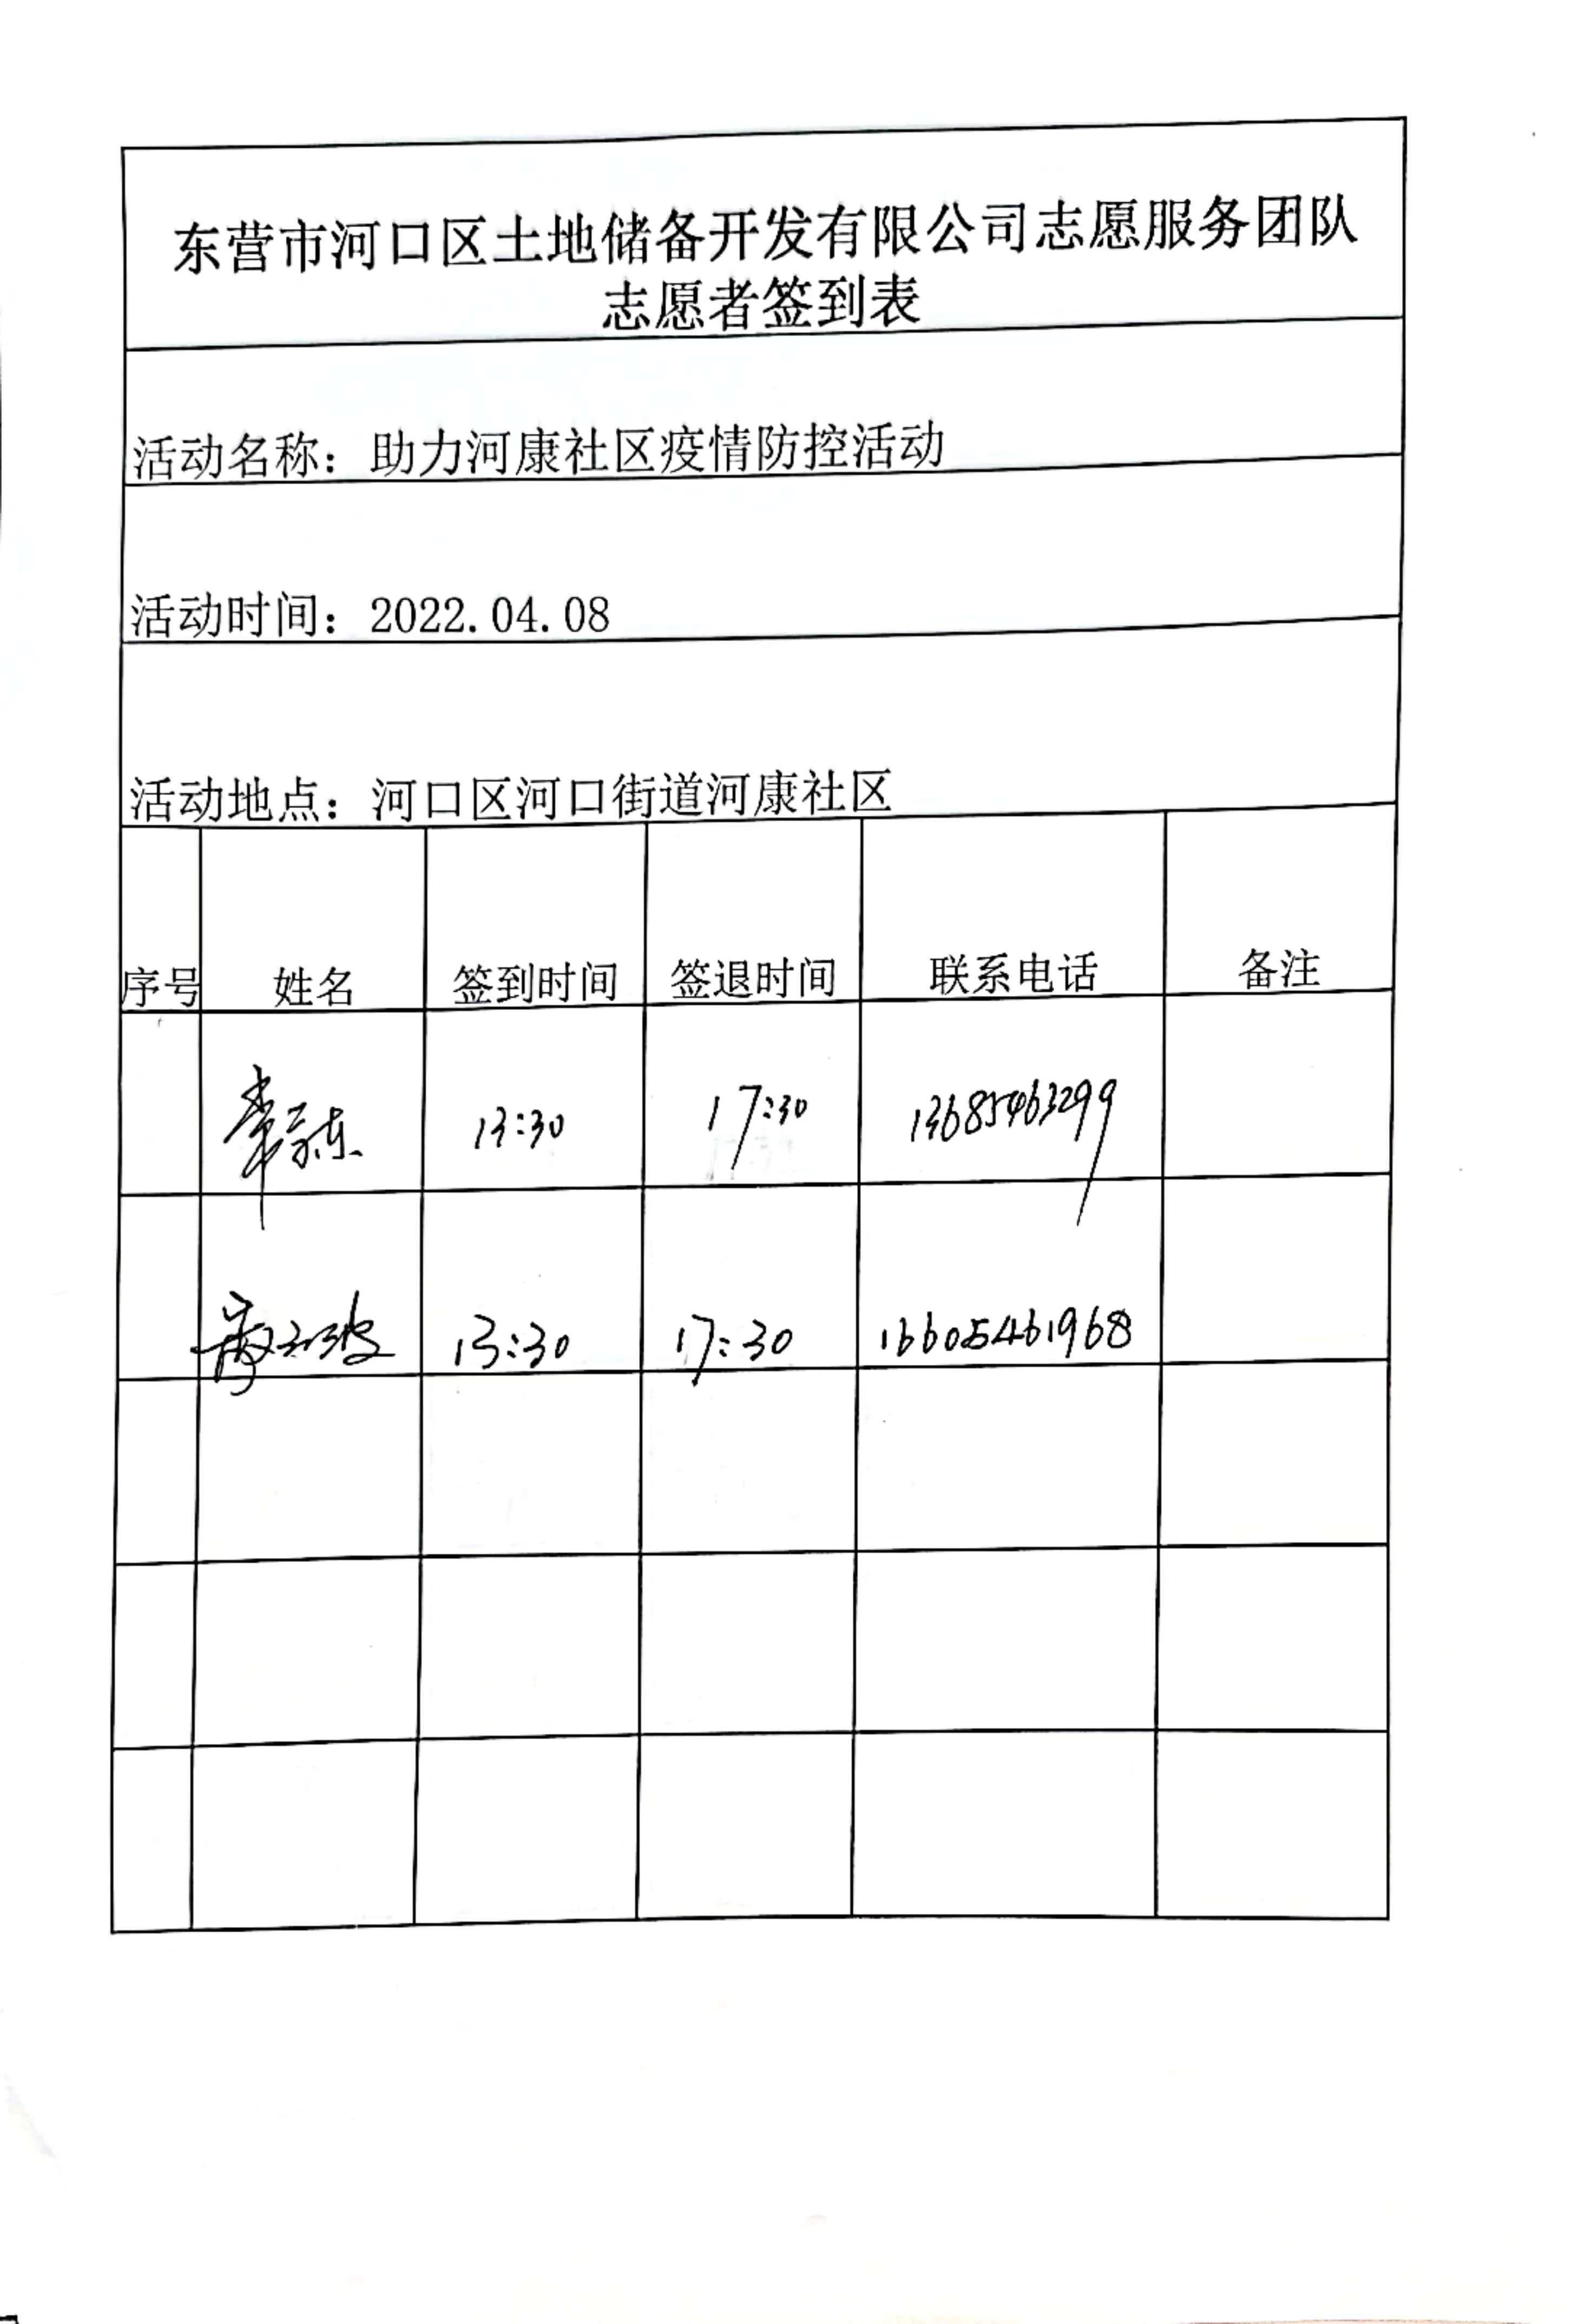 东营市河口区土地储备开发有限公司志愿服务团队
志愿者签到表
活动名称：助力河康社区疫情防控活动
活动时间：2022.04.08
活动地点：河口区河口街道河康社区
序号 姓名 签到时间 签退时间 联系电话 备注
13:30 17:30 13685463299
13:30 17:30 16605461968